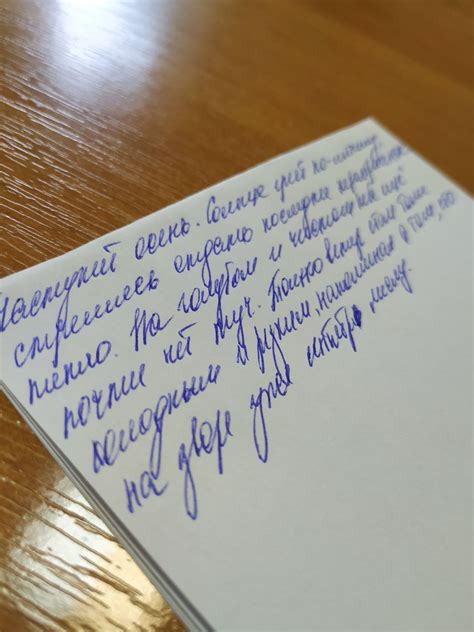 Наступил осень. Солнце греет по-летнему,
стремясь отдать последнее
тепло. На голубом и чистом небе ещё
почти нет туч. Только ветер стал более
холодным и резким, напоминая о том, что
на дворе уже